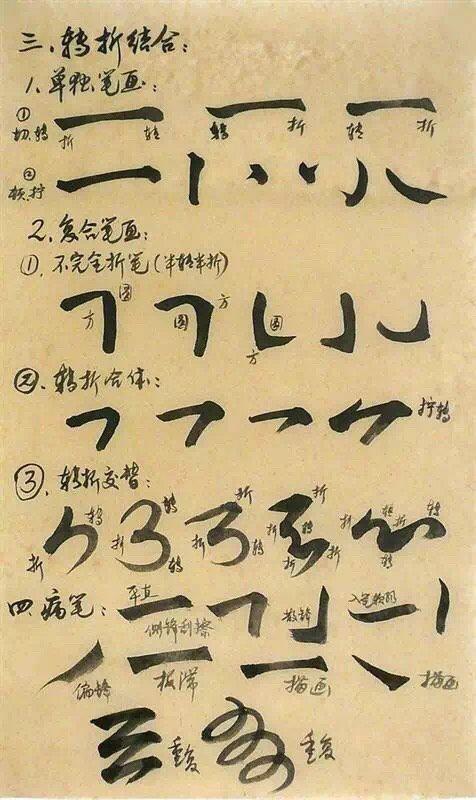 三、转折结合：
1.单独笔画：
① 切、转 折 转 转 折 转 折
② 顿、拧
2.复合笔画：
①.不完全折笔(半转半折)
方 圆 圆 方 圆 方
②.转折合体：
拧转
③.转折交替：
折 转 折 转 转 折 折 转 折 转 折 折 折 转 折 转 转
四.病笔：平直 侧锋刮擦 散锋
偏锋 板滞 描画 描画
重复 重复